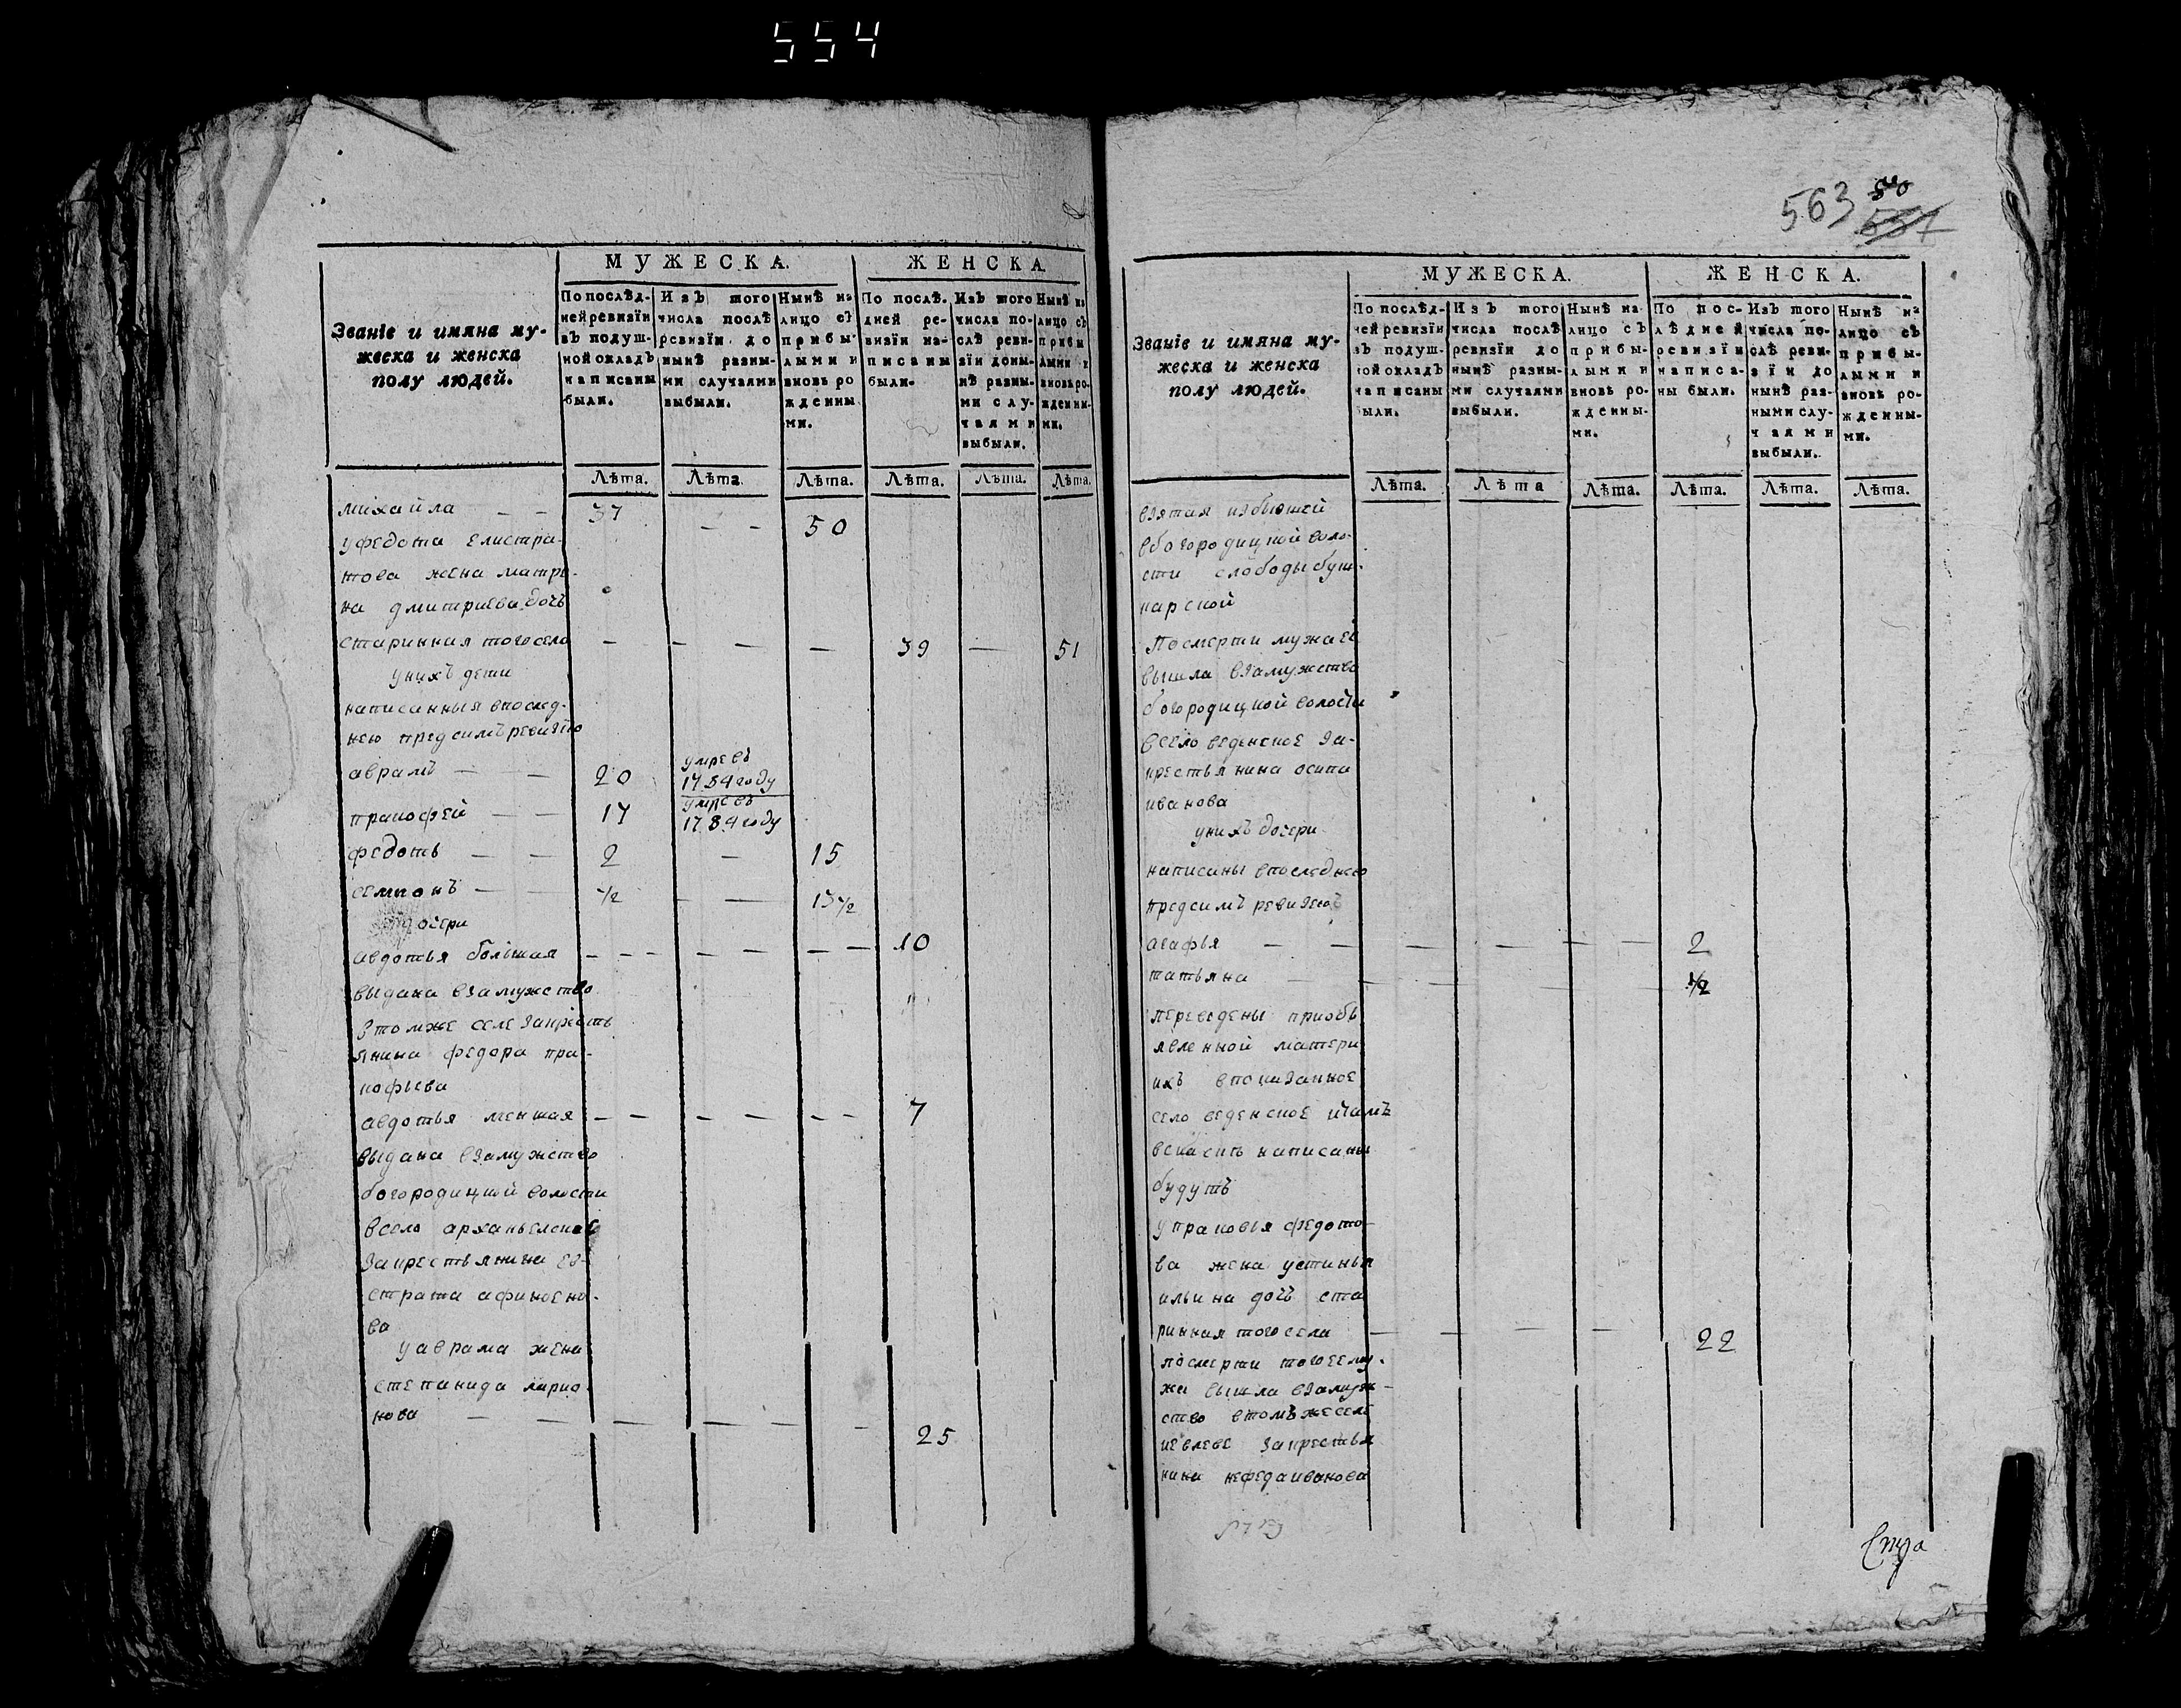 554
МУЖЕСКА.
ЖЕНСКА
Званіе и имяна му-
жеска и женска
полу людей.
По послѣд-
ней ревизіи
въ подуш-
ной окладъ
написаны
были.
Изъ того
числа послѣ
ревизіи до
нынѣ разны-
ми случаями
выбыли.
Нынѣ на
лицо съ
прибы-
лыми и
вновь ро
жденны
ми.
По послѣ-
дней ре-
визіи на-
писаны
были.
Изъ того
числа по-
слѣ реви-
зіи доны-
нѣ разны-
ми слу-
чаями
выбыли.
Нынѣ на
лицо съ
прибы
лыми и
вновь ро-
жденны-
ми.
Лѣта. Лѣта. Лѣта. Лѣта. Лѣта. Лѣта.
михайла — — 37 — — 50
уфедота елистра-
това жена матре-
на дмитриева дочь
старинная тогосела — — — — 39 — 51
унихъ дети
написанныя впослед-
нею предсимъ ревизїю
аврамъ — — 20 умре въ 1784 году
пракофей — — 17 умре въ 1784 году
федотъ — — 2 — 15
семионъ — — 1/2 — — 13 1/2
дочери
авдотья большая — — — — — — — — 10
выдана взамужство
втомже селе закресть
янина федора пра-
кофьева
авдотья меншая — — — — — — 7
выдана взамужство
богородицкой волости
всело архангелское
закрестьянина ев-
страта афиногено-
ва
уаврама жена
степанида ларио-
нова — — — — — — 25
563 540
557
МУЖЕСКА.
ЖЕНСКА.
Званіе и имяна му-
жеска и женска
полу людей.
По послѣд-
ней ревизіи
въ подуш-
ной окладъ
написаны
были.
Изъ того
числа послѣ
ревизіи до
нынѣ разны-
ми случаями
выбыли.
Нынѣ на
лицо съ
прибы-
лыми и
вновь ро-
жденны-
ми.
По пос-
лѣдней
ревизіи
написа-
ны были.
Изъ того
числа по-
слѣ реви-
зіи до
нынѣ раз-
ными слу-
чаями
выбыли.
Нынѣ на
лицо съ
прибы-
лыми и
вновь ро-
жденны-
ми.
Лѣта. Лѣта Лѣта. Лѣта. Лѣта. Лѣта.
взятая избывшей
вбогородицкой воло-
сти слободы буш-
карской
Посмерти мужа ее
вышла взамужство
богородицкой волости
всело веденское за-
крестьянина осипа
иванова
унихъ дочери
написаны впоследнею
предсимъ ревизею
агафья — — — — — — 2
татьяна — — — — — 1/2
переведены приобъ
явленной матери
ихъ впоказанное
село веденское итамъ
вскаскѣ написаны
будутъ
упракофья федото-
ва жена устинья
ильина дочь ста
ринная тогосела — — — — 22
посмерти тогоеему-
жа вышла взамуж-
ство втомъжеселе
иевлеве закрестья
нина нефедаиванова
Стра